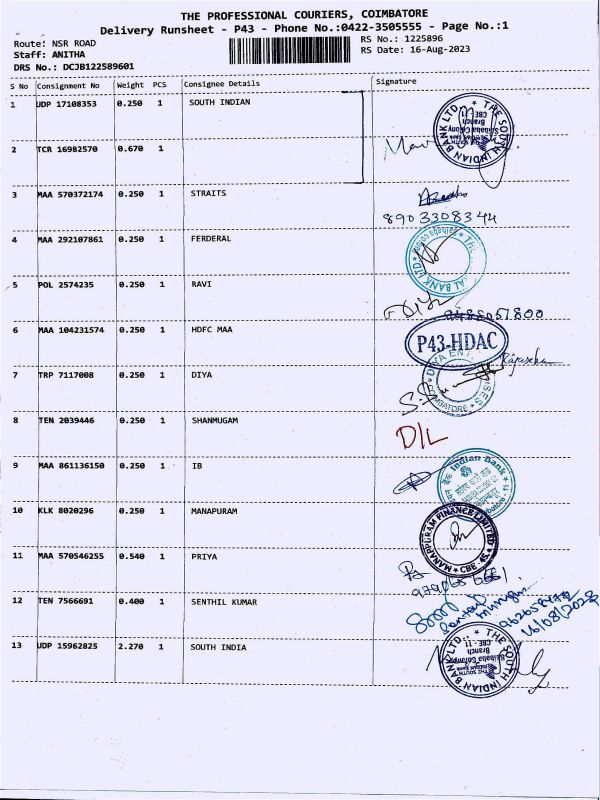 THE PROFESSIONAL COURIERS, COIMBATORE
Delivery Runsheet - P43 - Phone No.:0422-3505555 - Page No.:1
Route: NSR ROAD
RS No.: 1225896
Staff: ANITHA
RS Date: 16-Aug-2023
DRS No.: DCJB122589601
S No Consignment No Weight PCS Consignee Details Signature
1 UDP 17108353 0.250 1 SOUTH INDIAN
THE SOUTH INDIAN BANK LTD.
Saibaba Colony
Branch
CBE - 11
2 TCR 16982570 0.670 1
3 MAA 570372174 0.250 1 STRAITS
8903308344
4 MAA 292107861 0.250 1 FERDERAL
5 POL 2574235 0.250 1 RAVI
9488051800
6 MAA 104231574 0.250 1 HDFC MAA
P43-HDAC
7 TRP 7117008 0.250 1 DIYA
8 TEN 2039446 0.250 1 SHANMUGAM
D/L
9 MAA 861136150 0.250 1 IB
Indian Bank
10 KLK 8020296 0.250 1 MANAPURAM
MANAPPURAM FINANCE LIMITED
CBE-45
11 MAA 570546255 0.540 1 PRIYA
12 TEN 7566691 0.400 1 SENTHIL KUMAR
16/08/2023
13 UDP 15962825 2.270 1 SOUTH INDIA
THE SOUTH INDIAN BANK LTD.
Saibaba Colony
Branch
CBE - 11